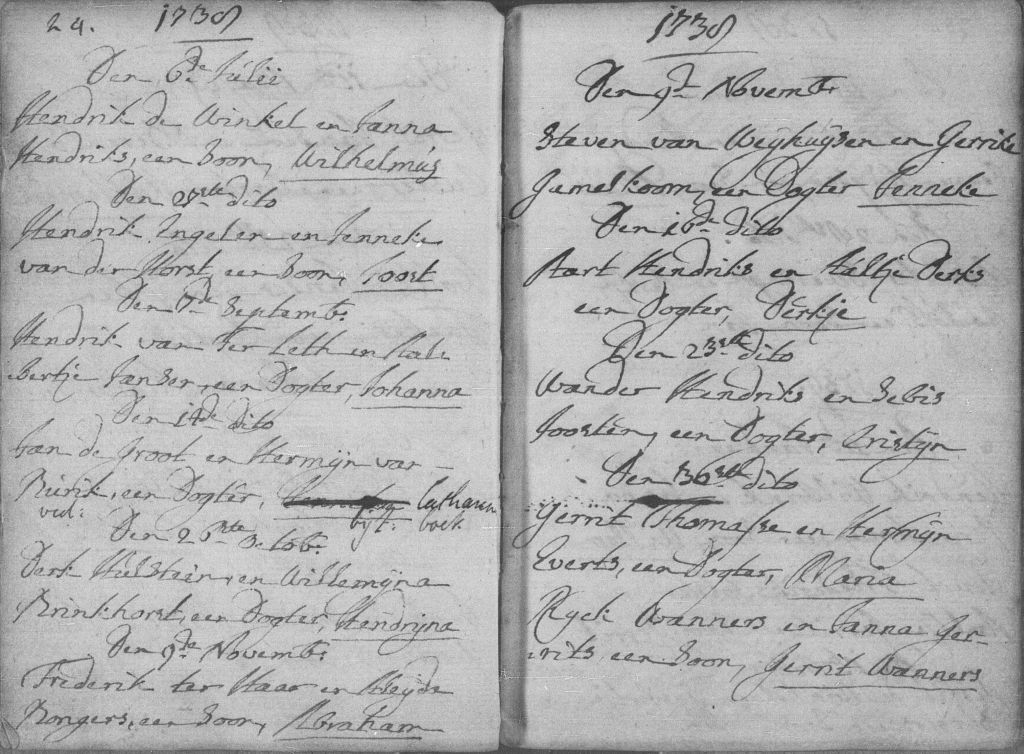 24.
1738
Den 6de Julii
Hendrik de Winkel en Janna
Hendriks, een Soon, Wilhelmus
Den dito
Hendrik Engelen en Jenneke
van der Horst, een Soon, Joost
Den 7de Septemb:
Hendrik van Ter Leth en Aal-
bertje Janser, een Dogter, Johanna
Den 14de dito
Jan de Groot en Hermijn van -
Rurik, een Dogter, Catharin
vid: bijl: boek
Den 26ste Octob:
Derk Hulstein, en Willemijna
Brinkhorst, een Dogter, Hendrijna
Den 9de Novemb:
Frederik ter Haar en Heyde
Rongers, een Soon, Abraham
1738
Den 9de Novemb:
Steven van Weijhuijsen en Gerrike
Gamelkoorn, een Dogter Jenneke
Den 16de dito
Aart Hendriks en Aaltje Derks
een Dogter, Derkje
Den 23ste dito
Wander Hendriks en Sebis
Joosten, een Dogter, Cristijn
Den 30ste dito
Gerrit Thomasse en Hermijn
Everts, een Dogter, Maria
Ryck Wanners en Janna Ger-
rits, een Soon, Gerrit Wanners